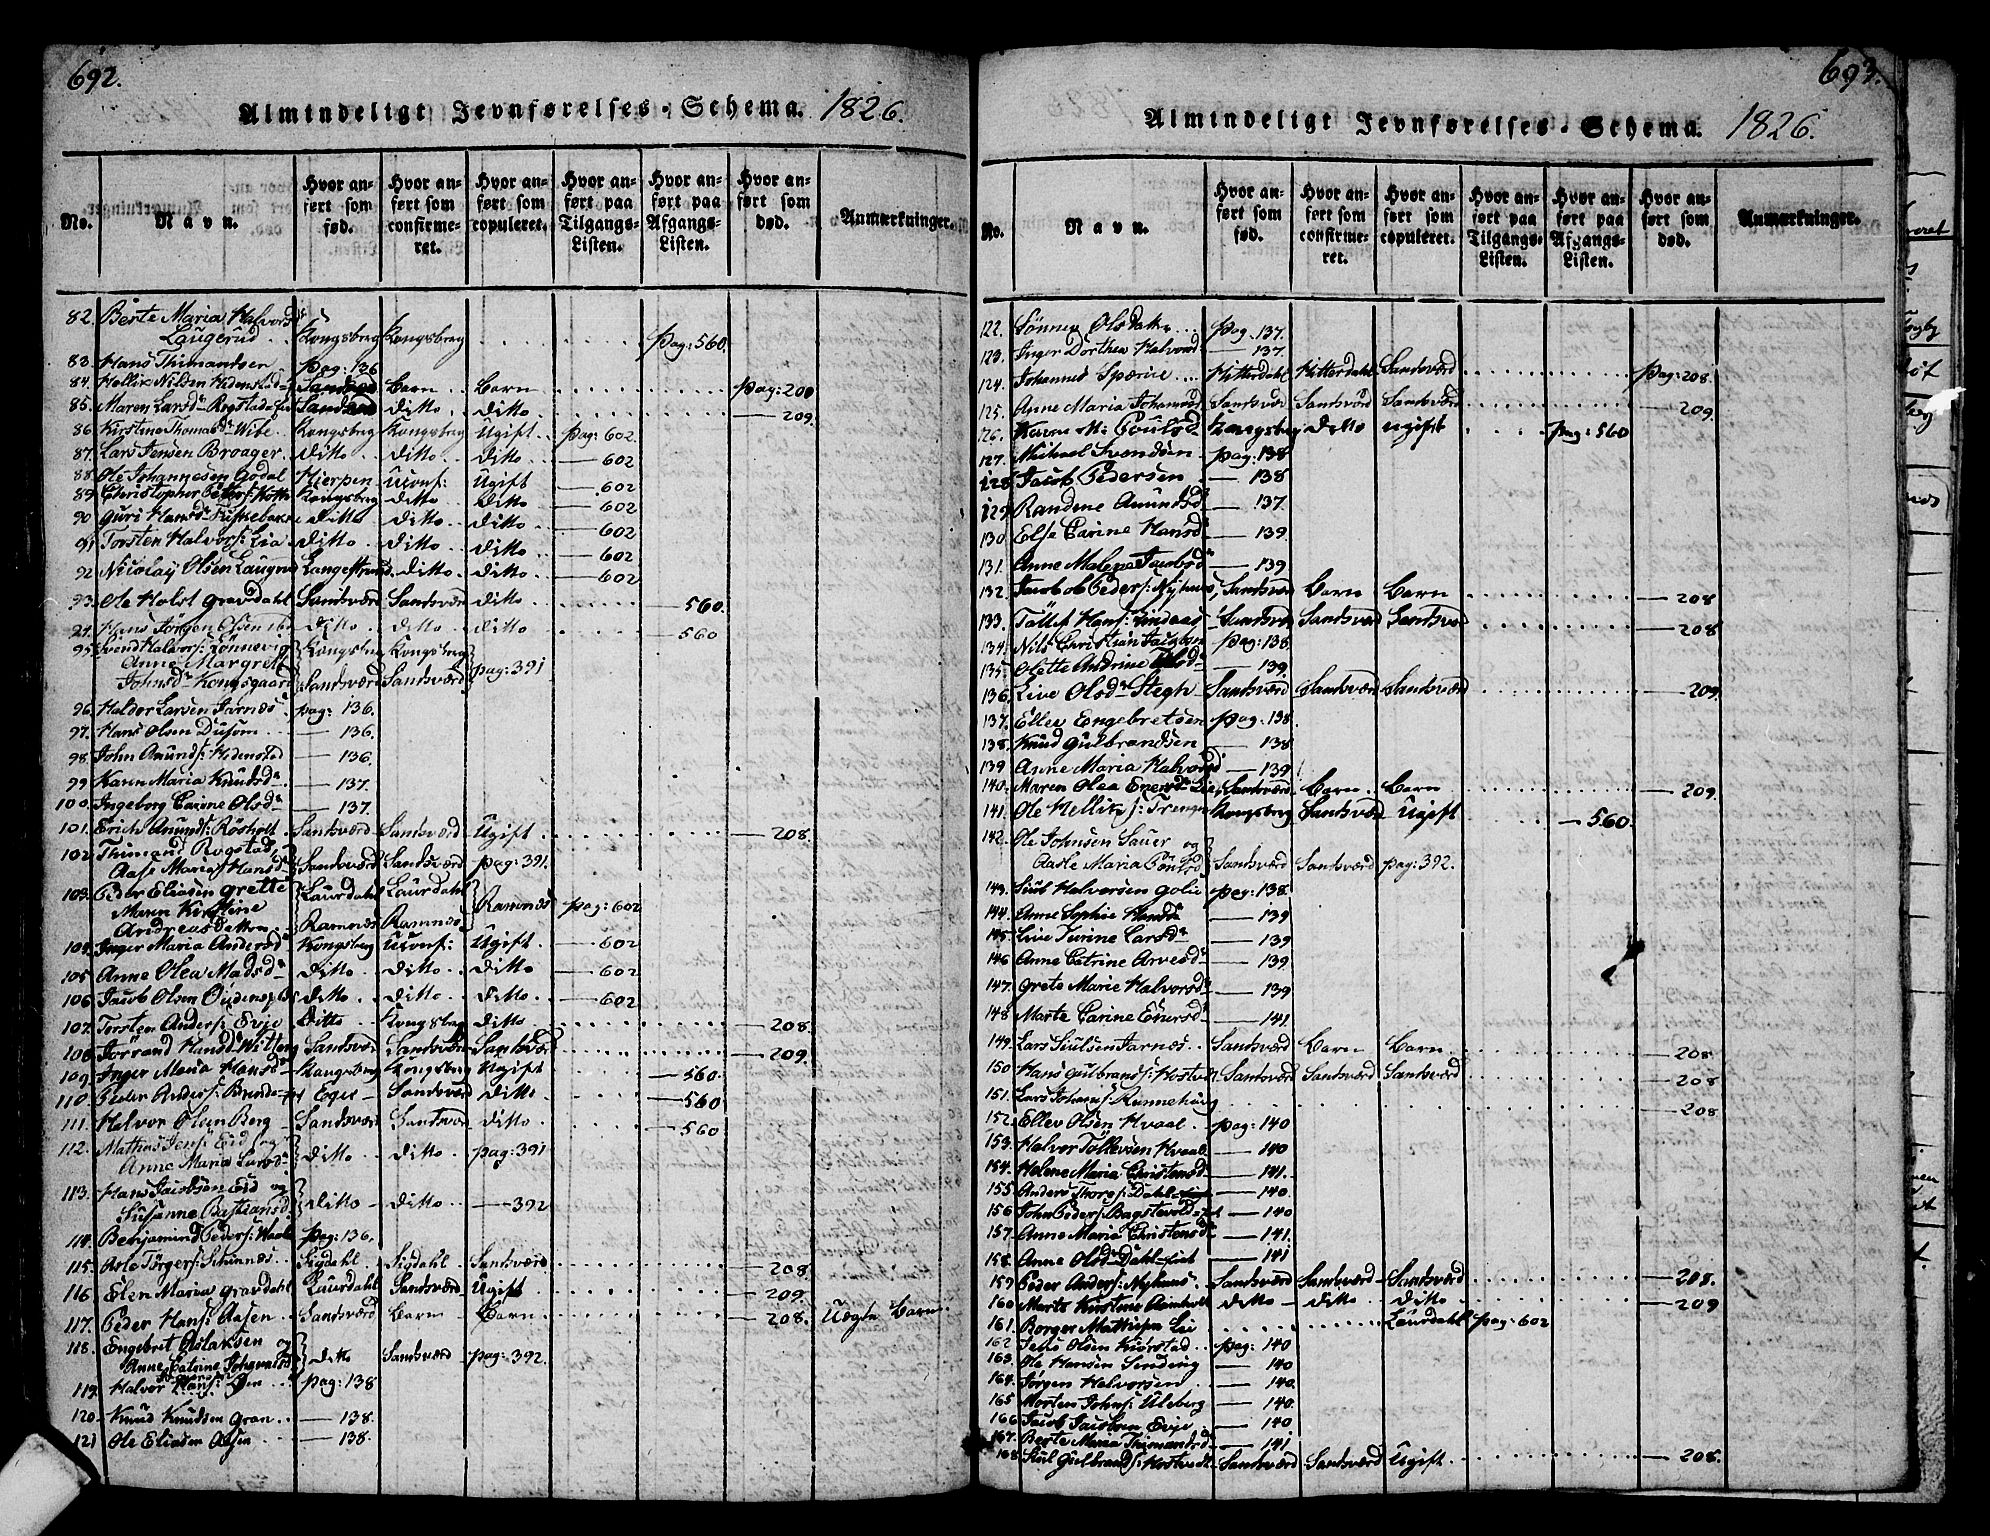 692.
Almindeligt Jevnførelses-Schema. 1826.
No. Navn. Hvor anført som fød. Hvor anført som confirmeret. Hvor anført som copuleret. Hvor anført paa Tilgangs-Listen. Hvor anført paa Afgangs-Listen. Hvor anført som død. Anmærkninger.
82. Berte Maria Halvorsdr
Laugerud .. Kongsberg Kongsberg pag: 560.
83. Hans Thimandsen pag: 136
84. Hellik Nilsen Hedenstad Sandsv. Barn Barn pag: 208
85. Maren Larsdr Rogstad Sandsv. ditto ditto — 209.
86. Kirstine Thomasdr Wibe Kongsberg Kongsberg Ugift pag: 602
87. Lars Jensen Broager ditto ditto ditto — 602
88. Ole Johannesen Godal Hierpen Uconf: Ugift — 602
89. Christopher Kongsberg ditto ditto — 602
90 Guri Hansdr Fiskebæk ditto ditto ditto — 602
91. Torsten Halvors: Lia ditto ditto ditto — 602
92 Nicolay Olsen Laugerud Langestrand ditto ditto — 602
93. Ole Holst Gravdahl Sandsværd Sandsværd ditto — 560.
94. Hans Jørgen Olsen ditto ditto ditto — 560
95 Svend Halvors: Lønnevig Kongsberg Kongsberg
Anne Margrete
Johnsdr Kongsgaard Sandsværd Sandsværd pag: 391
96. Haldor Larsen Jarnæs pag: 136.
97. Hans Olsen Dusom — 136.
98. John Amunds: Hedenstad — 136.
99. Karen Maria Knudsdr — 137.
100. Ingeborg Carine Olsdr — 137.
101. Erich Amunds: Røsholt Sandsværd Sandsværd Ugift — 208.
102 Thimand Rogstad,
Aase Maria Hansdr Sandsværd Sandsværd pag: 391.
103. Peder Eliasen Grette Laurdahl Laurdahl
Maren Kirstine
Andreasdatter Ramnæs Ramnæs Ramnæs pag: 602
104. Inger Maria Andersdr Kongsberg Uconf: Ugift — 602
105 Anne Olea Madsdr ditto ditto ditto — 602
106. Jacob Olsen ditto ditto ditto — 602
107. Torsten Anders: Evje ditto Kongsberg ditto — 208.
108. Jørand Hansdr Sandsværd Sandsværd Sandsværd — 209.
109. Inger Maria Hansdr Kongsberg Kongsberg Ugift — 560.
110. Peder Anders: Eger Sandsværd ditto — 560
111. Halvor Olsen Berg Sandsværd Sandsværd ditto — 560
112. Mathias Jens: Eid og
Anne Maria Larsdr ditto ditto pag: 391
113. Hans Jacobsen Eid og
Susanne Bastiansdr ditto ditto — 392
114. Benjamind Peders: pag: 136.
115. Asle Tørgers: Skinnæs Sigdahl Sigdahl Sandsværd — 208.
116 Elen Maria Gravdahl Laurdahl Sandsværd Ugift — 209.
117. Peder Hans: Aasen Sandsværd Barn Barn — 208. Uægte Barn.
118. Engebret Aslaksen og
Anne Catrine Johannesdr ditto Sandsværd pag: 392.
119. Halvor Hans: Øen pag: 138
120. Knud Knudsen Gran — 138.
121 Ole Eliasen Aasen — 138.
693.
Almindeligt Jevnførelses-Schema. 1826.
No. Navn. Hvor anført som fød. Hvor anført som confirmeret. Hvor anført som copuleret. Hvor anført paa Tilgangs-Listen. Hvor anført paa Afgangs-Listen. Hvor anført som død. Anmærkninger.
122. Sønnev Olsdatter pag. 137.
123. Inger Dorthea Halvorsdr — 137.
124. Johannes Hitterdahl Hitterdahl Sandsværd pag: 208.
125. Anne Maria Johannesdr Sandsværd Sandsværd Sandsværd — 209.
126. Karen M: Poulsdr Kongsberg ditto Ugift pag: 560
127. Michael Svendsen pag: 138
128 Jacob Pedersen — 138
129 Randine Amundsdr — 137.
130 Else Carine Hansdr — 139.
131. Anne Malene Jacobsdr — 139
132. Jacob Peders: Nyhuus Sandsværd Barn Barn — 208
133. Tøllef Hans: Lindaas Sandsværd Sandsværd Sandsværd — 208
134. Nils Christian Jacobsen pag: 138.
135 Olette Andrine Olsdr — 139.
136. Live Olsdr Stegh Sandsværd Sandsværd Sandsværd — 209.
137. Ellev Engebretsen pag: 138.
138. Knud Gulbrandsen — 138
139 Anne Maria Halvorsdr — 139
140. Maren Olea Enersdr Sandsværd. Barn. Barn — 209.
141. Ole Helliks: Kongsberg Sandsværd Ugift — 560.
142. Ole Johnsen Sauer og
Aasle Maria Poulsdr Sandsværd Sandsværd pag: 392.
143. Halvorsen Golie pag: 138.
144. Anne Sophie Hansdr — 139
145. Live Turine Larsdr — 139
146 Anne Catrine Arvesdr — 139
147. Grete Marie Halvorsdr — 139
148 Marte Carine Enersdr — 141.
149. Lars Jarnæs Sandsværd Barn Barn — 208
150 Hans Gulbrands: Hostvedt Sandsværd Sandsværd Sandsværd — 208
151. Lars Johans: — 208
152. Ellev Olsen Hvaal pag: 140
153. Halvor Tøllevsen Hvaal — 140
154. Helene Maria Christensdr — 141.
155 Anders Thores: Dahl — 140.
156 John Peders: Bagstevold — 140
157. Anne Maria Christensdr — 141.
158. Anne Olsdr Dahl — 141
159 Peder Anders: Nyhuus Sandsværd Sandsværd Sandsværd — 208.
160 Marte Kirstine ditto ditto ditto — 209
161. Borger Mathisen Lie Laurdahl pag: 602
162 Jens Olsen Kiørstad pag: 140
163. Ole Hansen — 140
164. Jørgen Halvorsen — 140.
165 Morten Johns: Uleberg — 140.
166 Jacob Jacobsen Evje — 140
167. Berte Maria Thimandsdr — 141
168 Gulbrands: Hostvedt Sandsværd Sandsværd Ugift — 208.